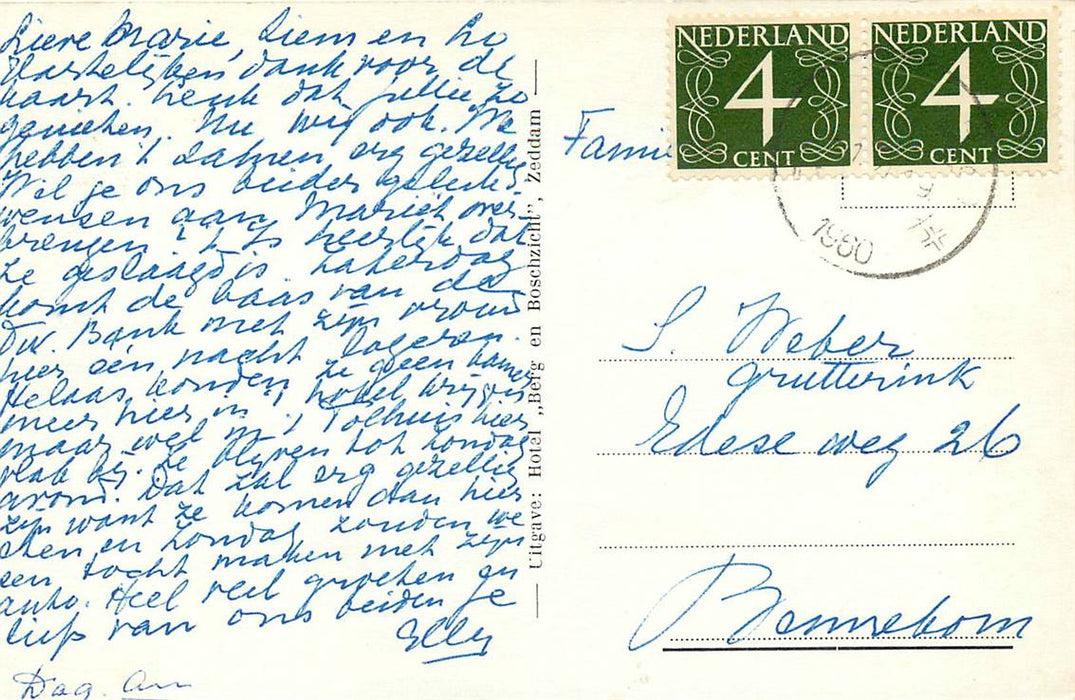 Lieve Marie, Siem en Lo
Hartelijken dank voor de
kaart. Leuk dat jullie zo
genieten. Nu wij ook. We
hebben 't samen erg gezellig
Wil je ons beider geluk-
wensen aan Mariet over-
brengen 't Is heerlijk dat
ze geslaagd is. Zaterdag
komt de baas van de
Bank met zijn vrouw
hier één nacht logeren.
Helaas konden ze geen kamer
meer hier in 't hotel krijgen
maar wel in 't Tolhuis hier
vlak bij. Ze blijven tot Zondag
avond. Dat zal erg gezellig
zijn want ze komen dan hier
eten en Zondag zouden we
een tocht maken met zijn
auto. Heel veel groeten en
liefs van ons beiden je
Elly
Dag. An
Uitgave: Hotel „Berg en Boschzicht", Zeddam
NEDERLAND
4
CENT
NEDERLAND
4
CENT
1960
Famil
S. Weber
Grutterink
Edese weg 26
Bennekom